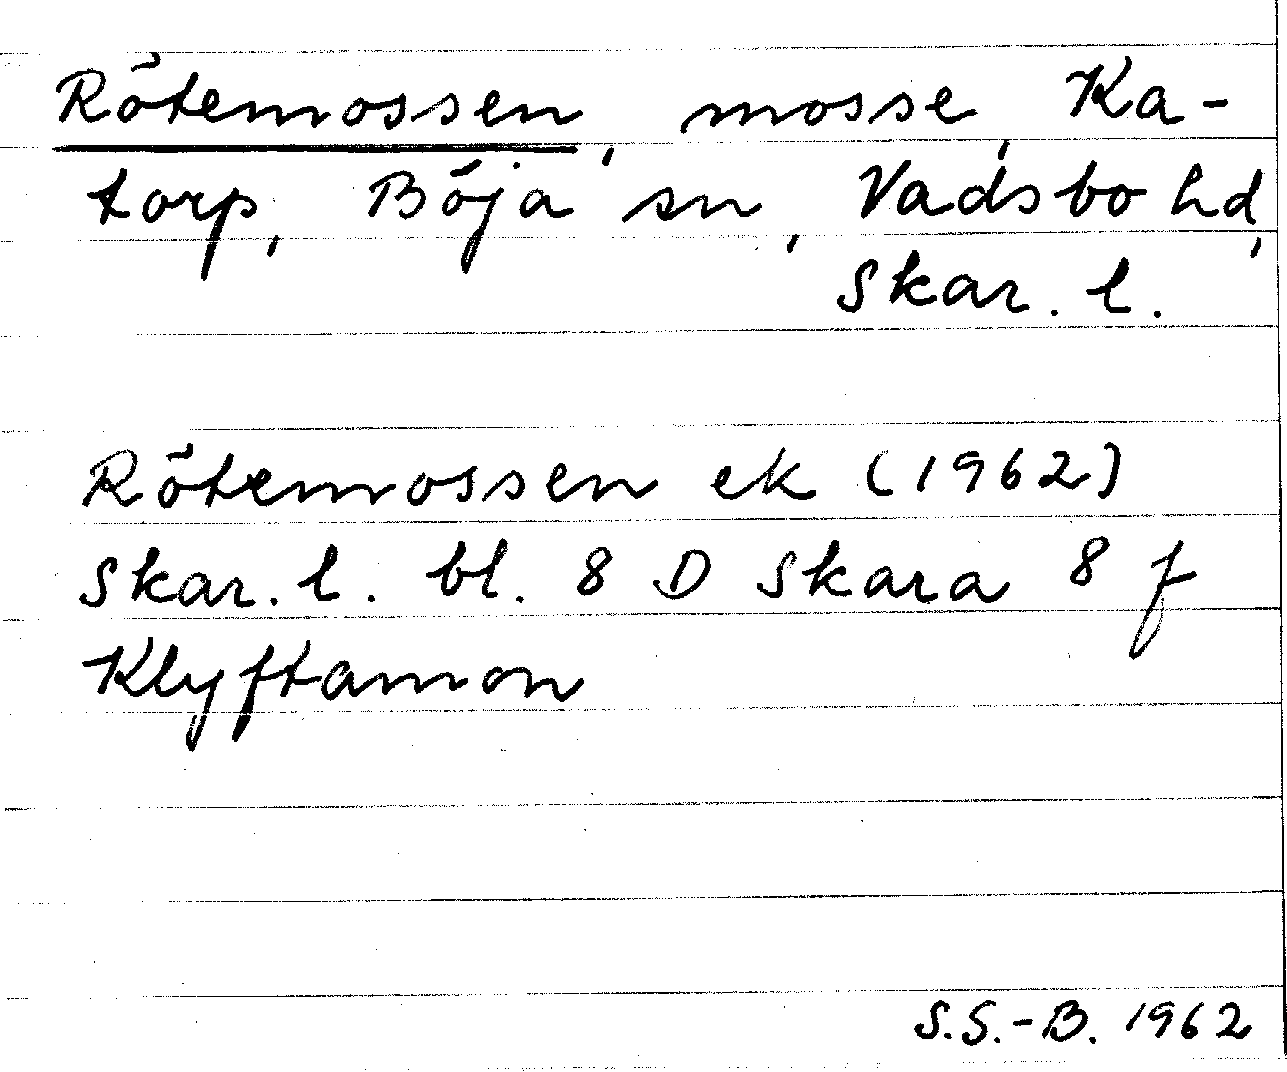 Rötemossen, mosse, Ka-
torp, Böja sn, Vadsbo hd,
Skar. l.
Rötemossen ek (1962)
Skar. l. bl. 8 D Skara 8 f
Klyftamon
S.S.-B. 1962